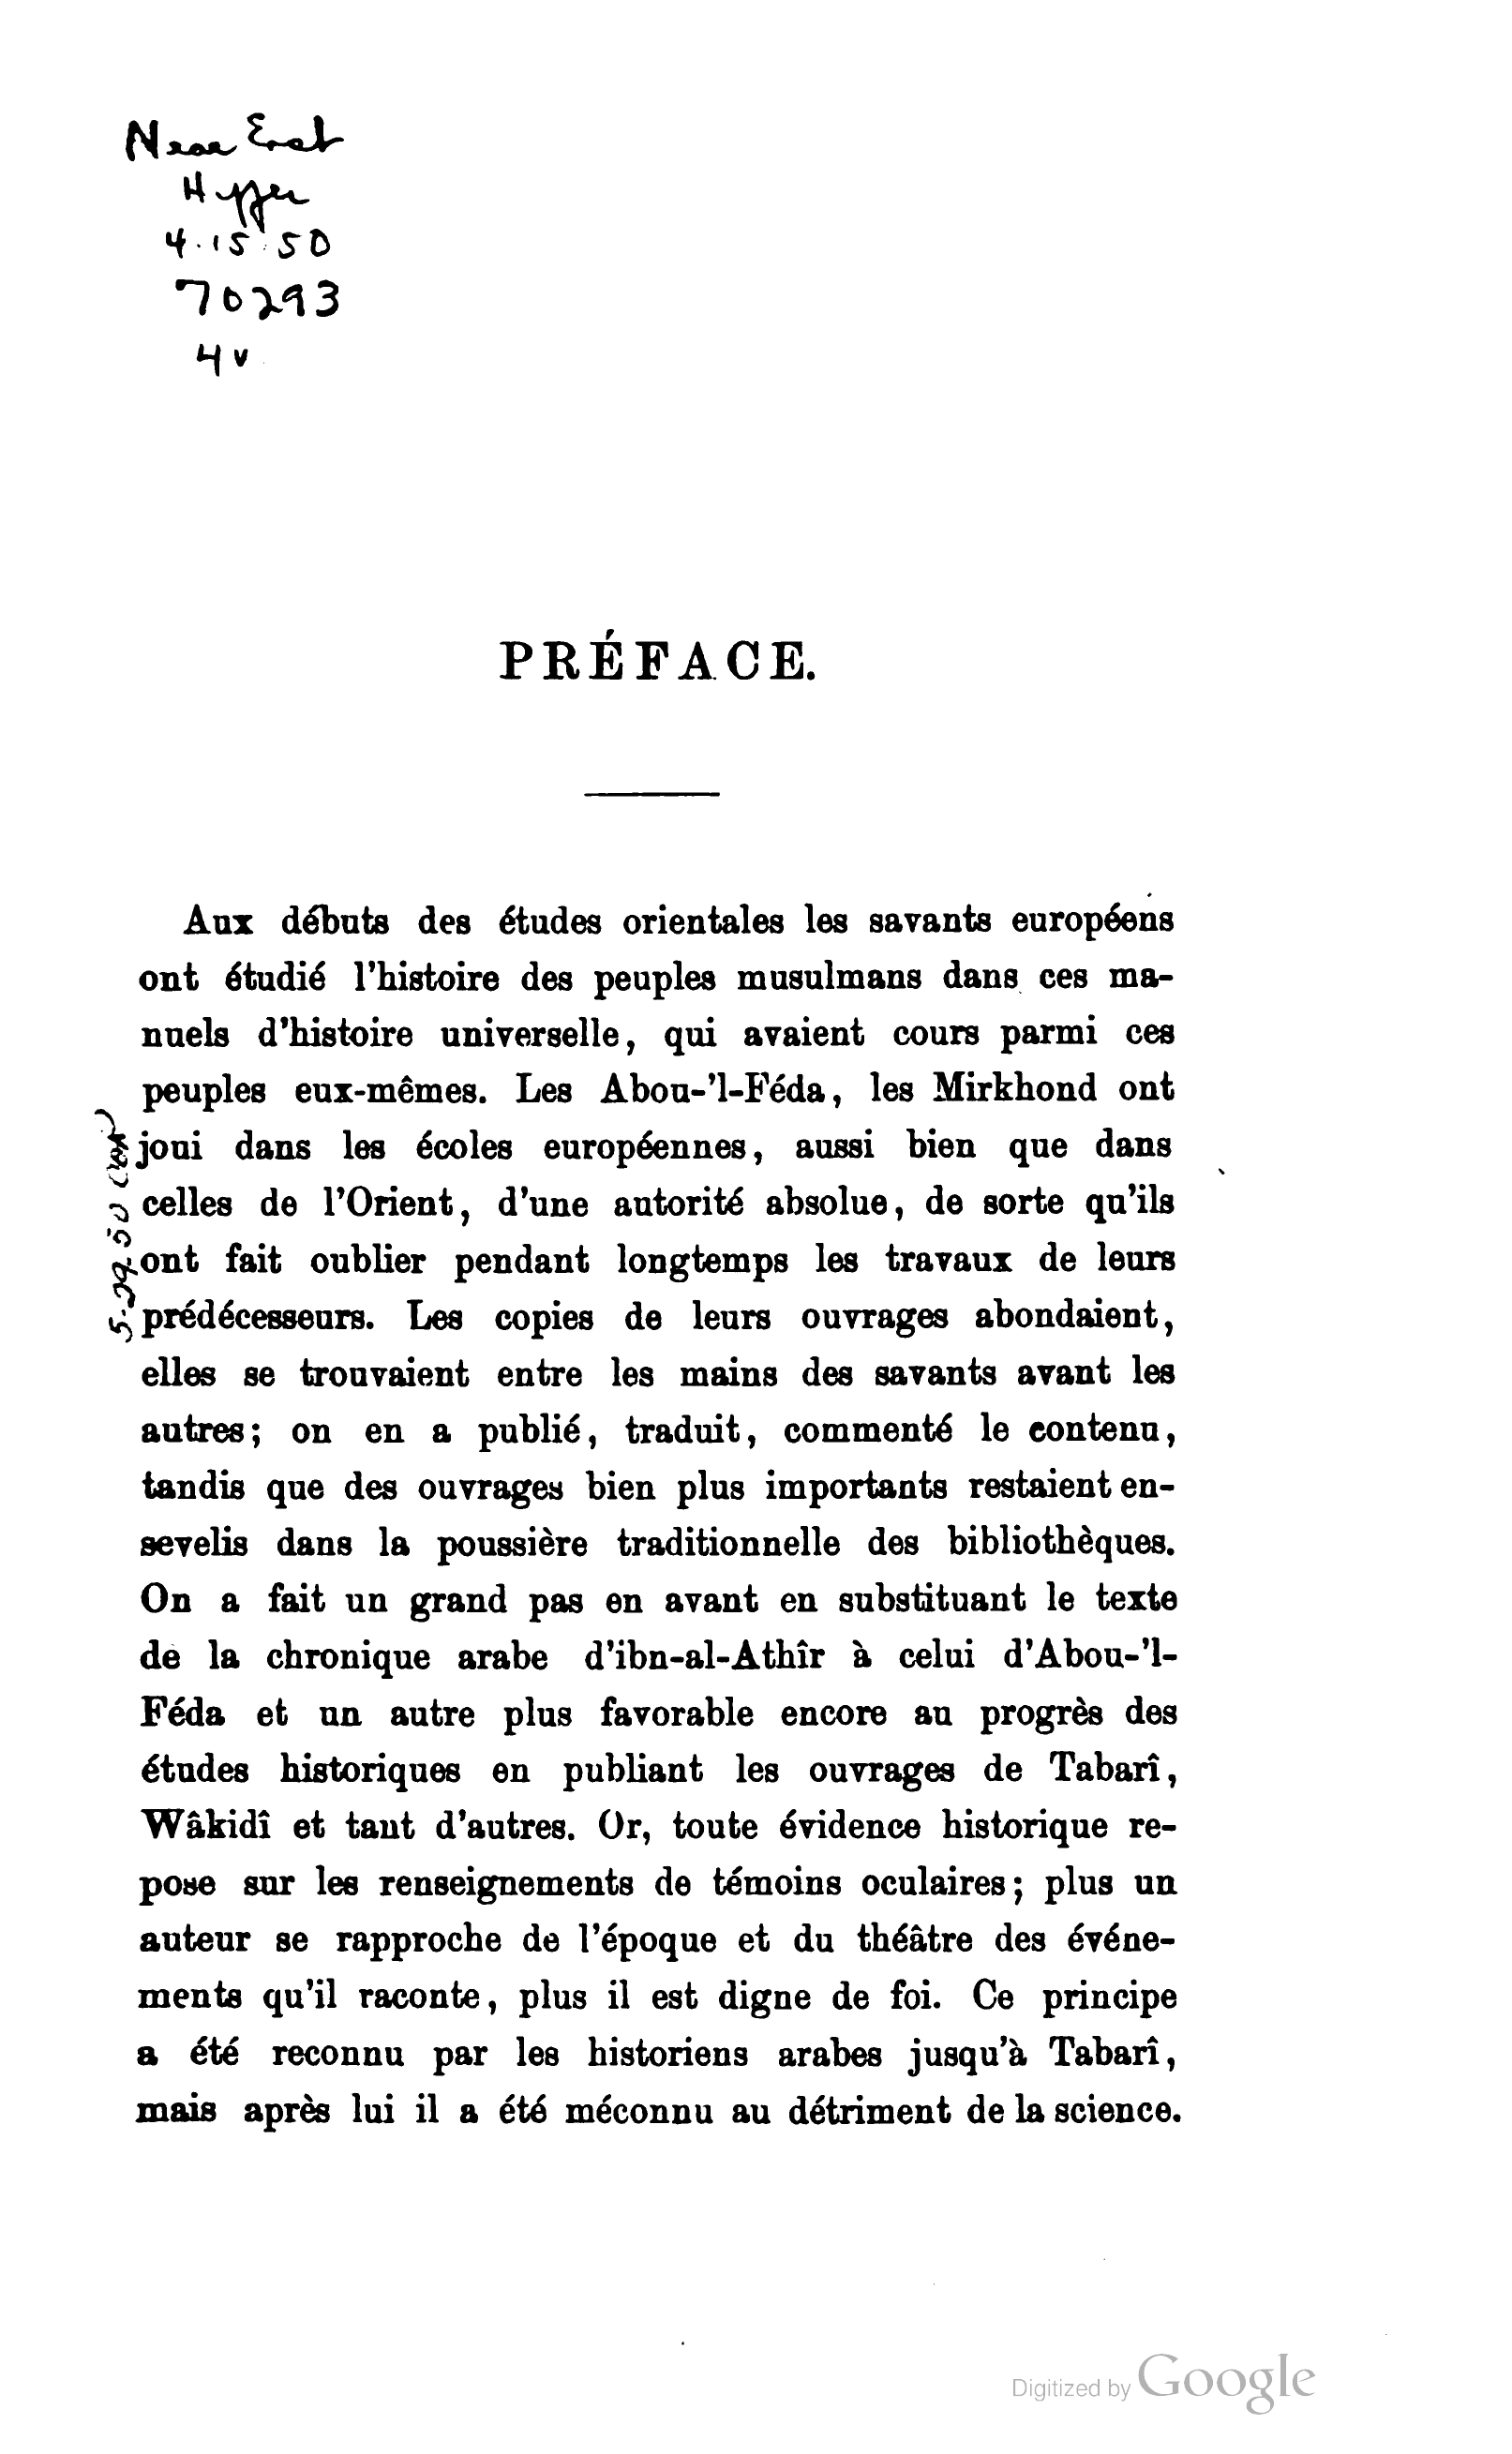 Near East
4.15.50
70293
4v
PRÉFACE.
Aux débuts des études orientales les savants européens
ont étudié l'histoire des peuples musulmans dans ces ma-
nuels d'histoire universelle, qui avaient cours parmi ces
peuples eux-mêmes. Les Abou-'l-Féda, les Mirkhond ont
joui dans les écoles européennes, aussi bien que dans
celles de l'Orient, d'une autorité absolue, de sorte qu'ils
ont fait oublier pendant longtemps les travaux de leurs
prédécesseurs. Les copies de leurs ouvrages abondaient,
elles se trouvaient entre les mains des savants avant les
autres; on en a publié, traduit, commenté le contenu,
tandis que des ouvrages bien plus importants restaient en-
sevelis dans la poussière traditionnelle des bibliothèques.
On a fait un grand pas en avant en substituant le texte
de la chronique arabe d'ibn-al-Athîr à celui d'Abou-'l-
Féda et un autre plus favorable encore au progrès des
études historiques en publiant les ouvrages de Tabarî,
Wâkidî et tant d'autres. Or, toute évidence historique re-
pose sur les renseignements de témoins oculaires; plus un
auteur se rapproche de l'époque et du théâtre des événe-
ments qu'il raconte, plus il est digne de foi. Ce principe
a été reconnu par les historiens arabes jusqu'à Tabarî,
mais après lui il a été méconnu au détriment de la science.
Digitized by Google